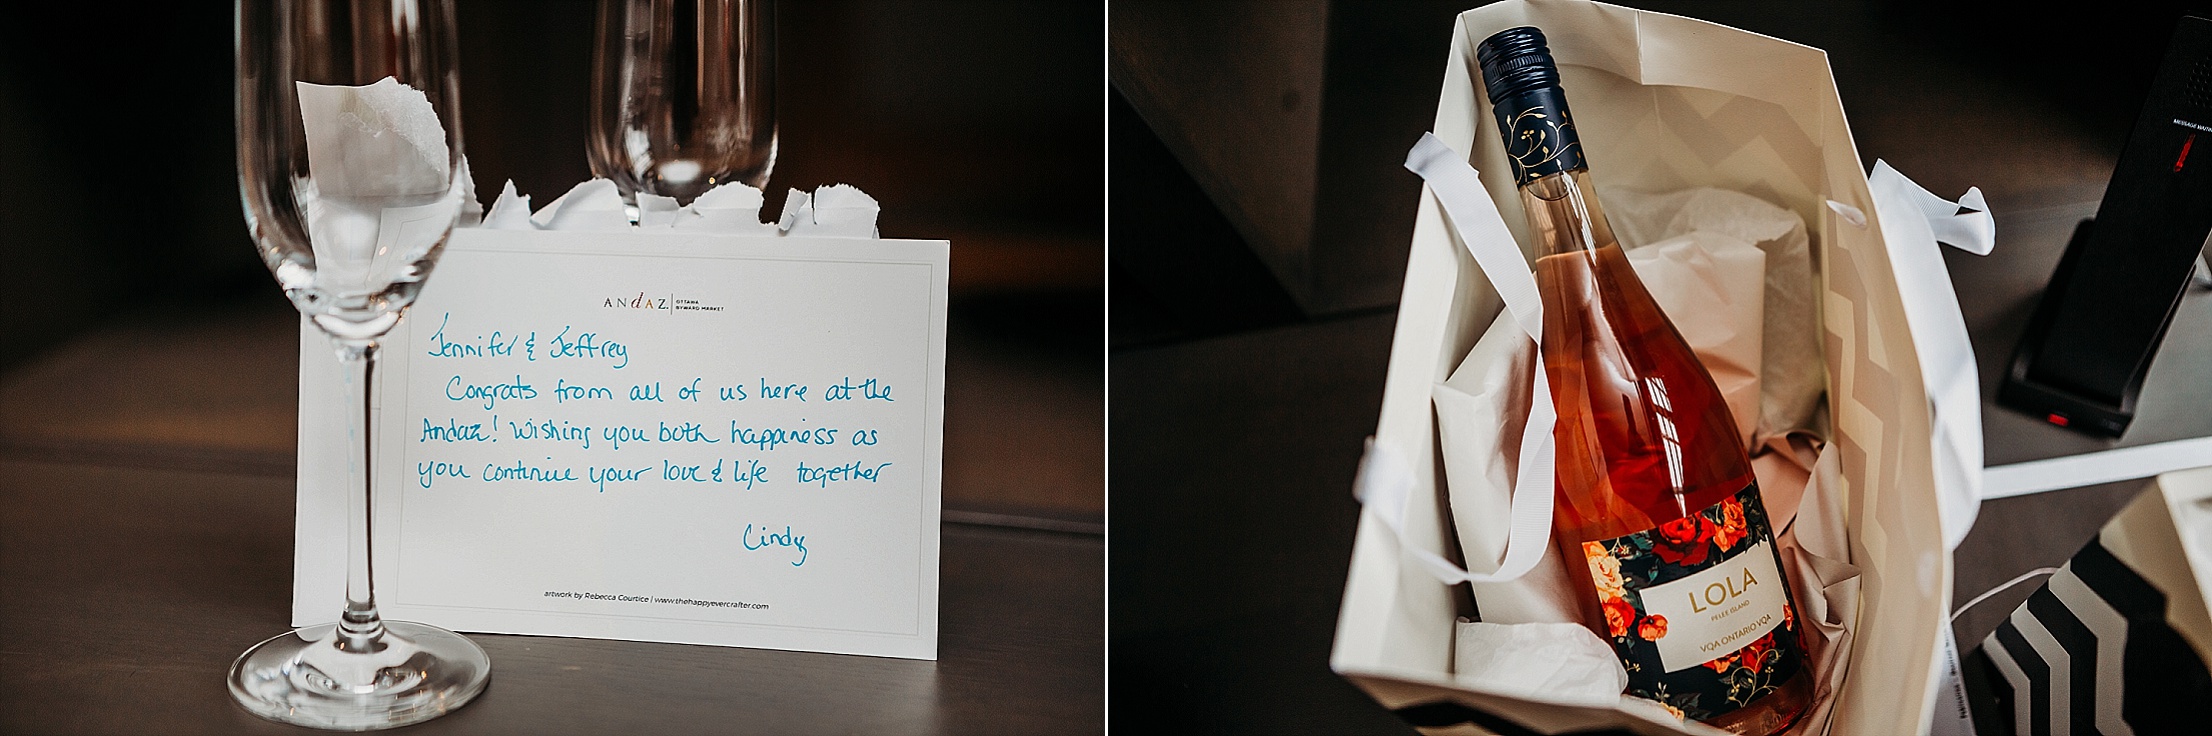 ANdAZ. OTTAWA
BYWARD MARKET
Jennifer & Jeffrey
Congrats from all of us here at the
Andaz! Wishing you both happiness as
you continue your love & life together
Cindy
artwork by Rebecca Courtice | www.thehappyevercrafter.com
LOLA
PELEE ISLAND
VQA ONTARIO VQA
MESSAGE